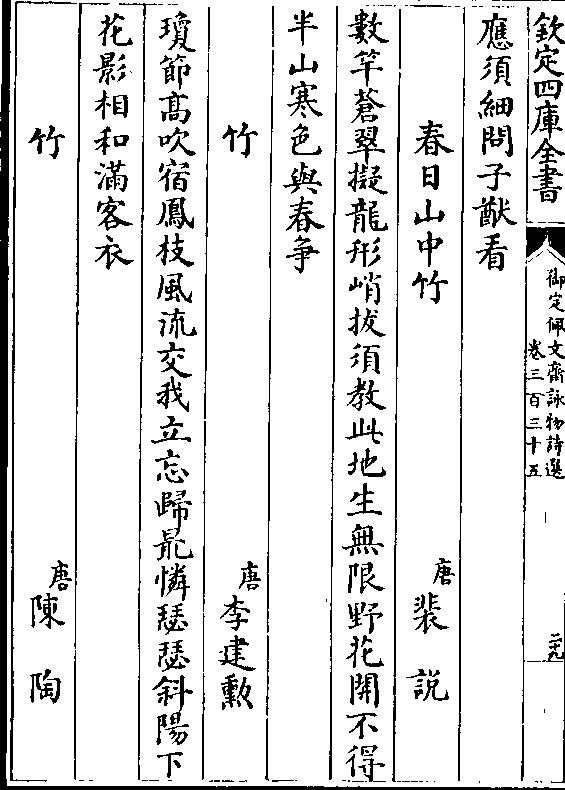 欽定四庫全書
御定佩文齋詠物詩選
卷三百三十五
二十九
應須細問子猷看
春日山中竹
唐 裴說
數竿蒼翠擬龍形峭拔須教此地生無限野花開不得
半山寒色與春爭
竹
唐 李建勳
瓊節高吹宿鳳枝風流交我立忘歸最憐瑟瑟斜陽下
花影相和滿客衣
竹
唐 陳陶